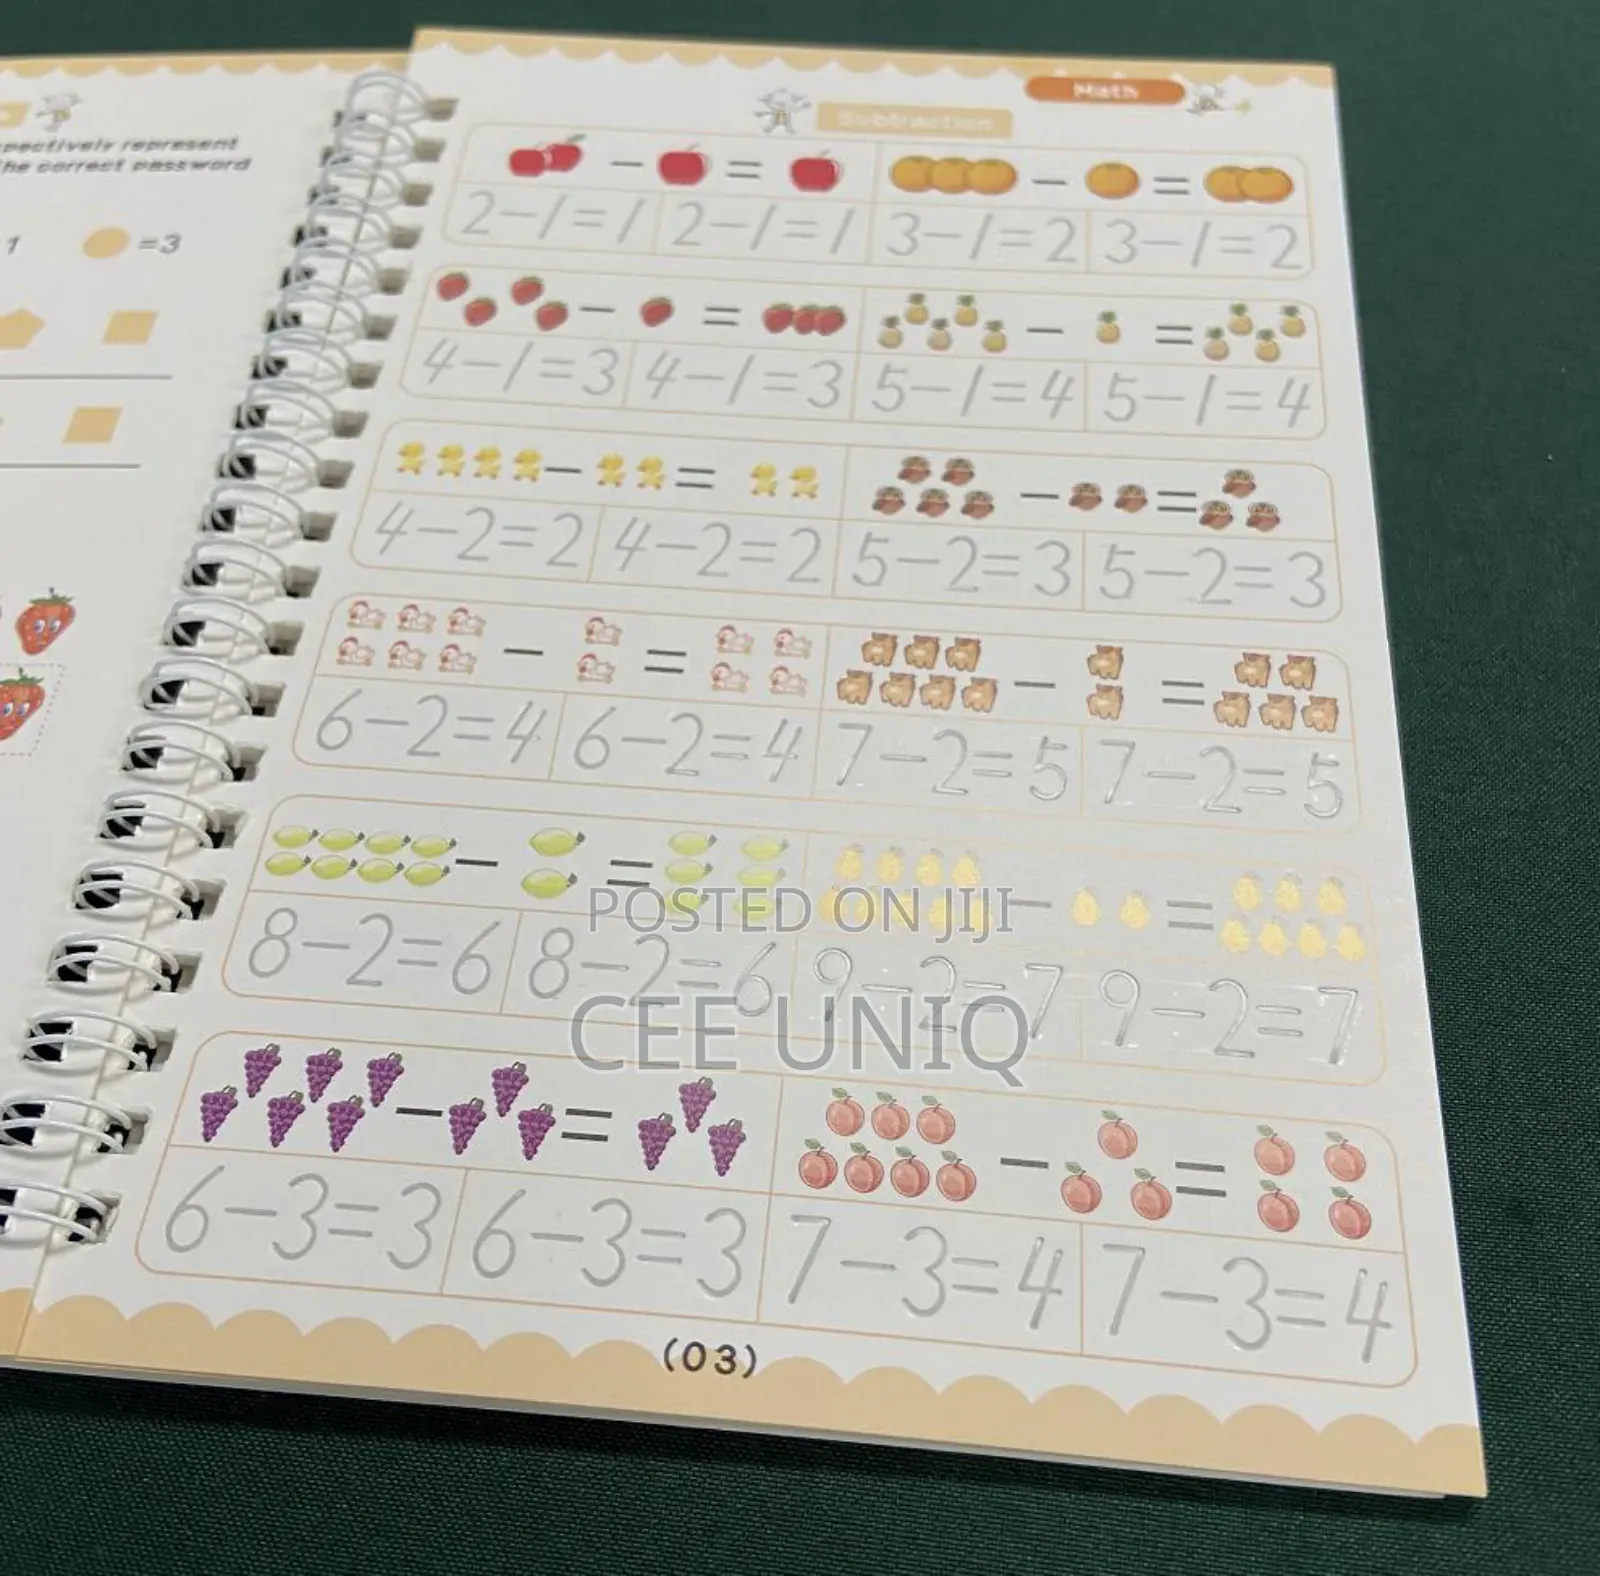 pectively represent
he correct password
1 =3
Math
Subtraction
- = - =
2-1=1 2-1=1 3-1=2 3-1=2
- = - =
4-1=3 4-1=3 5-1=4 5-1=4
- = - =
4-2=2 4-2=2 5-2=3 5-2=3
- = - =
6-2=4 6-2=4 7-2=5 7-2=5
- = - =
POSTED ON JIJI
8-2=6 8-2=6 9-2=7 9-2=7
CEE UNIQ
- = - =
6-3=3 6-3=3 7-3=4 7-3=4
(03)